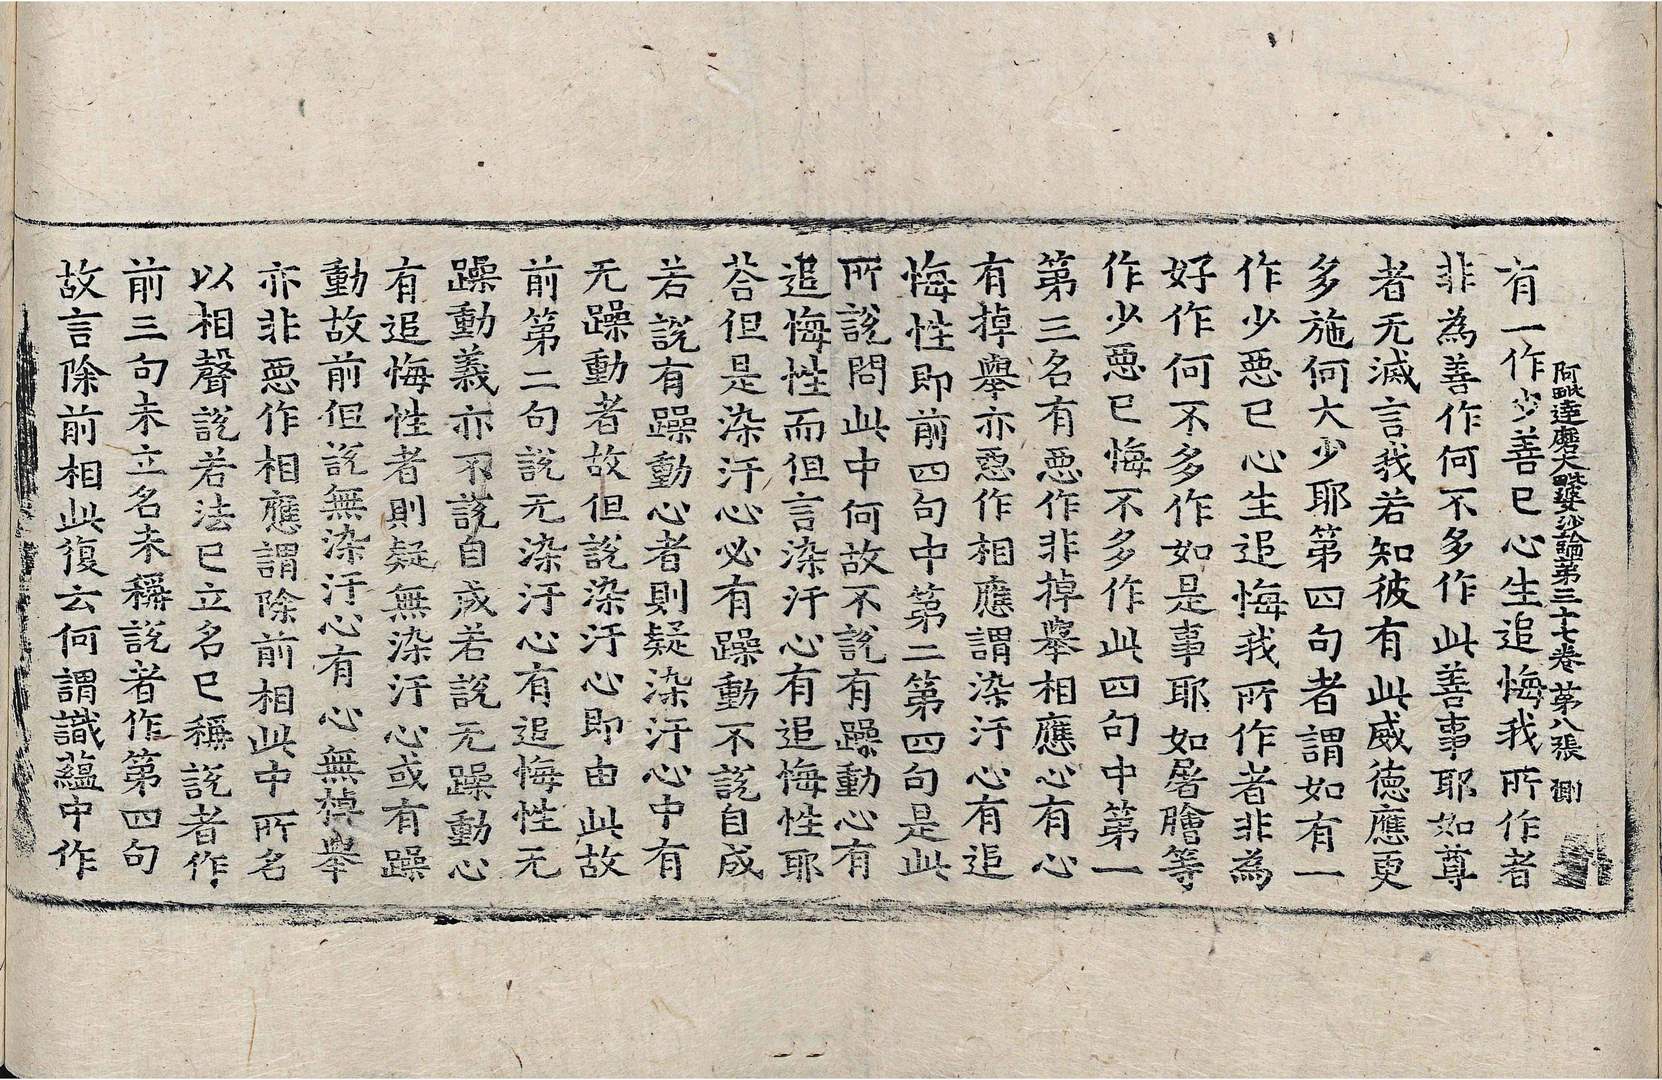 阿毗達磨大毗婆沙論第三十七卷 第八張 惻
有一作少善已心生追悔我所作者
非為善作何不多作此善事耶如尊
者无滅言我若知彼有此威德應更
多施何大少耶第四句者謂如有一
作少惡已心生追悔我所作者非為
好作何不多作如是事耶如屠膾等
作少惡已悔不多作此四句中第一
第三名有惡作非掉舉相應心有心
有掉舉亦惡作相應謂染汙心有追
悔性即前四句中第二第四句是此
所說問此中何故不說有躁動心有
追悔性而但言染汙心有追悔性耶
荅但是染汙心必有躁動不說自成
若說有躁動心者則疑染汙心中有
无躁動者故但說染汙心即由此故
前第二句說无染汙心有追悔性无
躁動義亦不說自成若說无躁動心
有追悔性者則疑無染汙心或有躁
動故前但說無染汙心有心無掉舉
亦非惡作相應謂除前相此中所名
以相聲說若法已立名已稱說者作
前三句未立名未稱說者作第四句
故言除前相此復云何謂識蘊中作